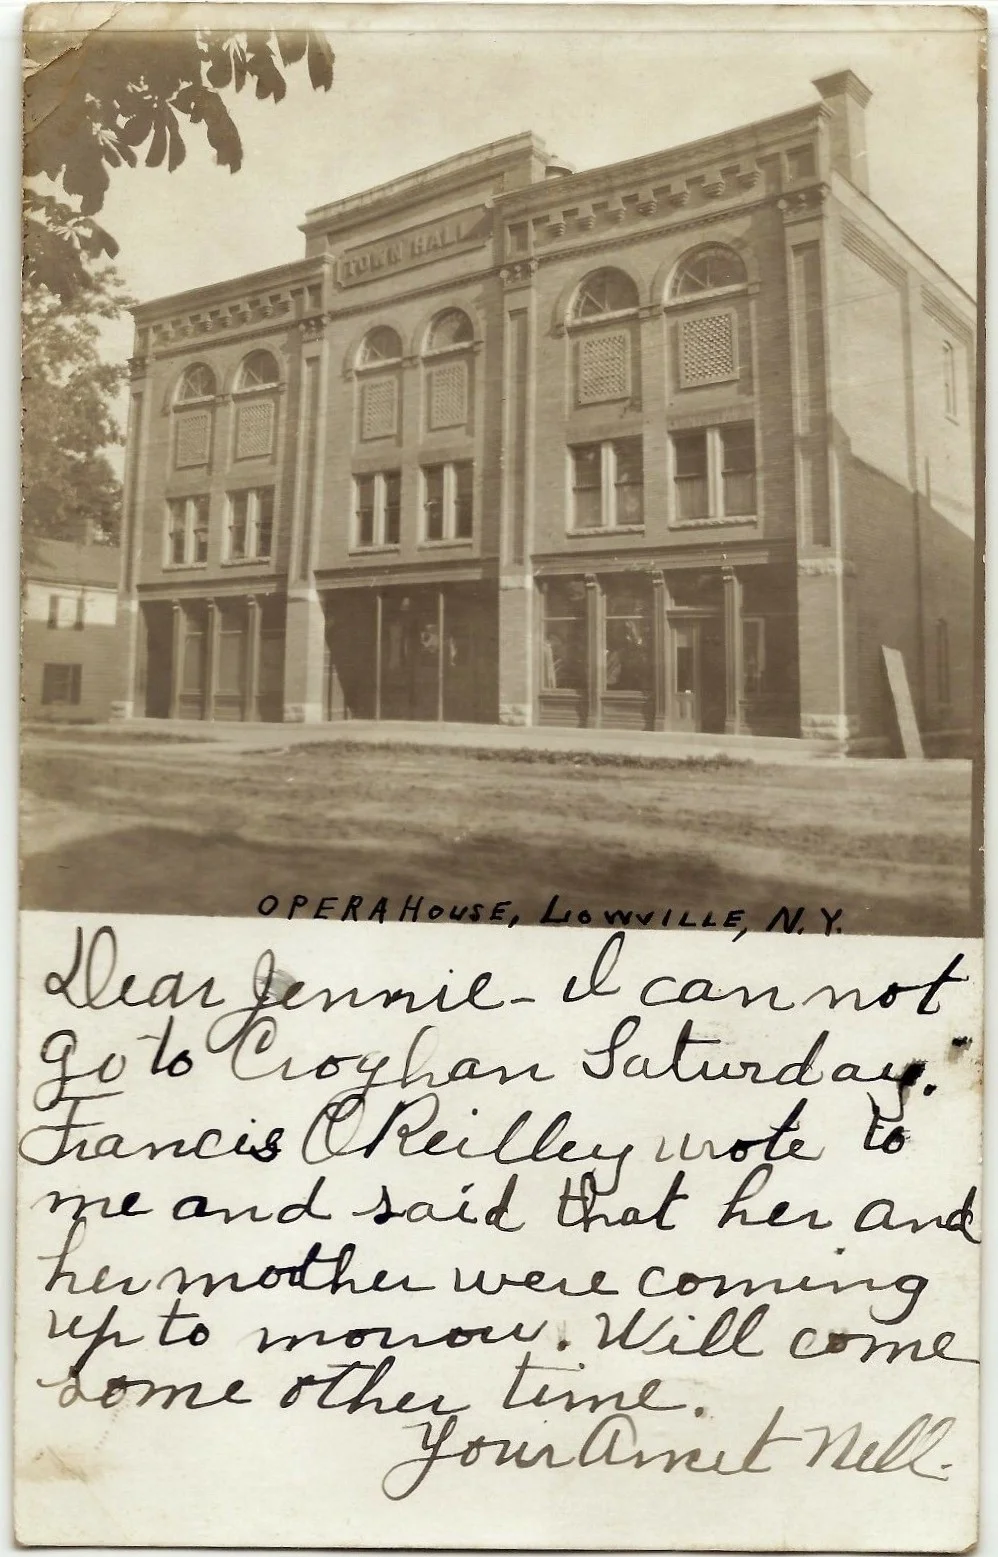 TOWN HALL
OPERA HOUSE, LOWVILLE, N.Y.
Dear Jennie - I can not
go to Croghan Saturday.
Francis O'Reilley wrote to
me and said that her and
her mother were coming
up to morrow. Will come
some other time.
Your Aunt Nell.